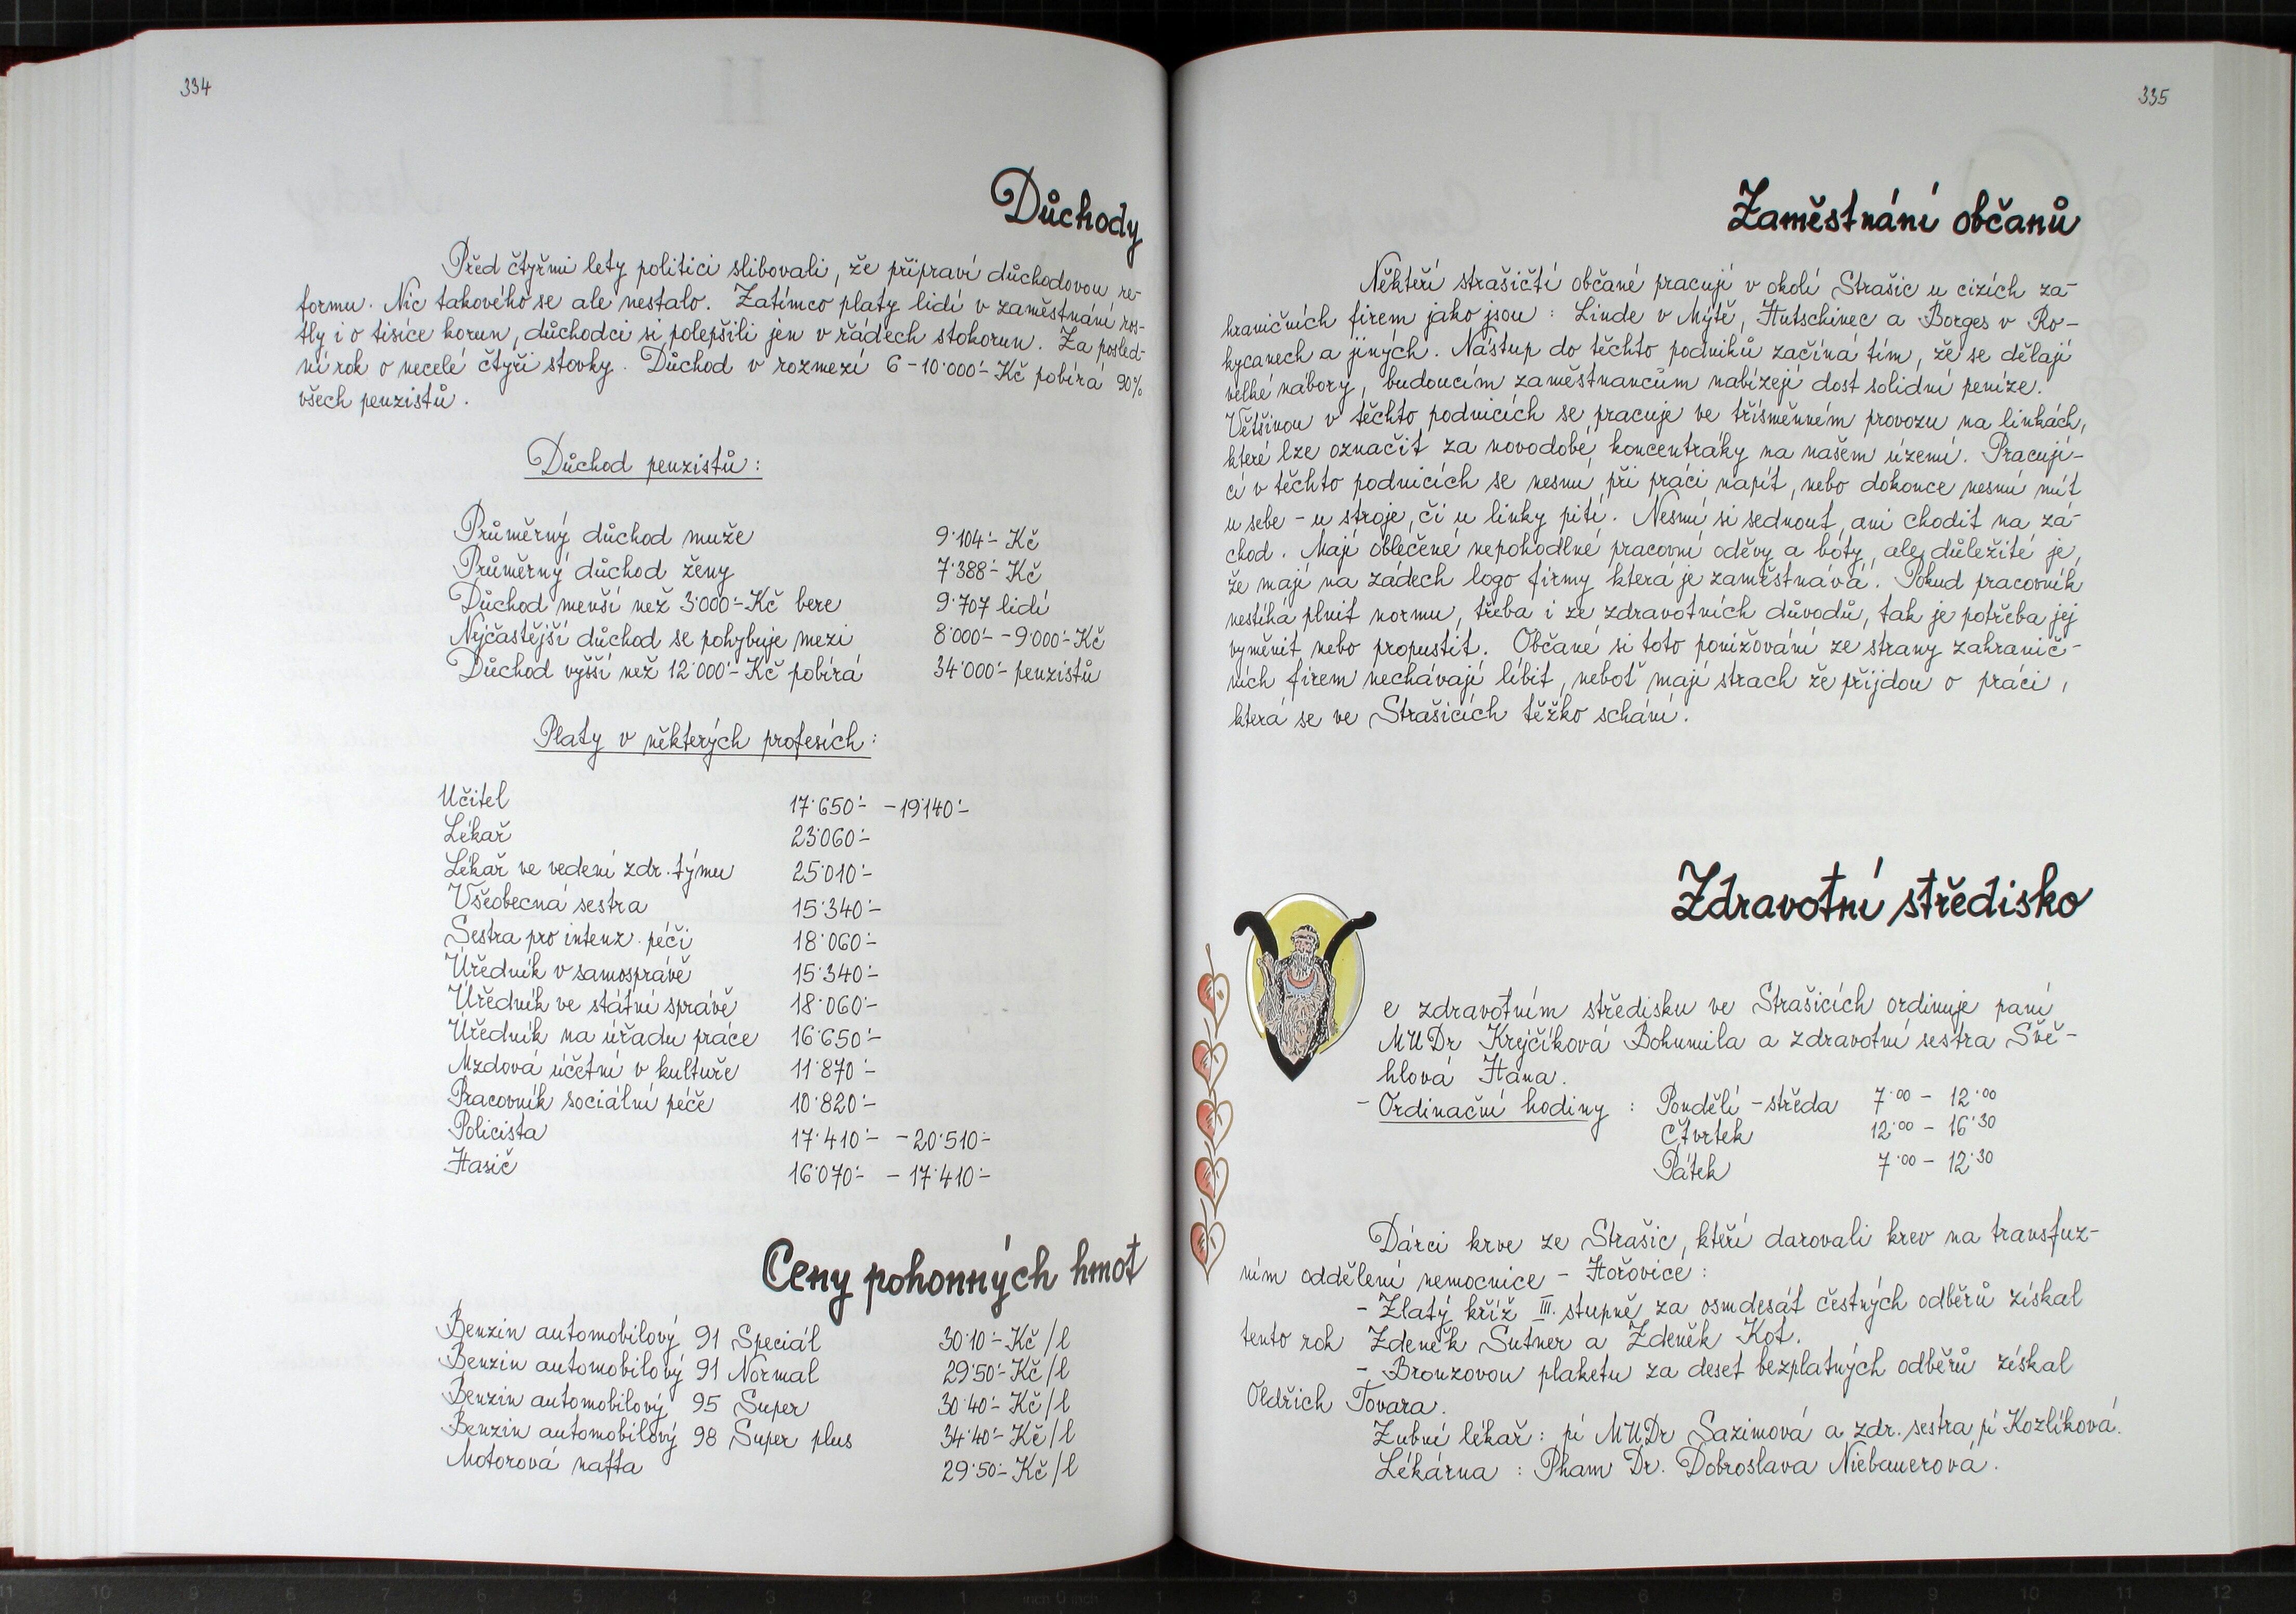 334
Důchody
Před čtyřmi lety politici slibovali, že připraví důchodovou re-
formu. Nic takového se ale nestalo. Zatímco platy lidí v zaměstnání ros-
tly i o tisíce korun, důchodci si polepšili jen v řádech stokorun. Za posled-
ní rok o necelé čtyři stovky. Důchod v rozmezí 6-10'000'- Kč pobírá 90%
všech penzistů.
Důchod penzistů:
Průměrný důchod muže 9'104'- Kč
Průměrný důchod ženy 7'388'- Kč
Důchod menší než 3'000'- Kč bere 9'707 lidí
Nejčastější důchod se pohybuje mezi 8'000'- - 9'000'- Kč
Důchod vyšší než 12'000'- Kč pobírá 34'000'- penzistů
Platy v některých profesích:
Učitel 17'650'- - 19'140'-
Lékař 23'060'-
Lékař ve vedení zdr. týmu 25'010'-
Všeobecná sestra 15'340'-
Sestra pro intenz. péči 18'060'-
Úředník v samosprávě 15'340'-
Úředník ve státní správě 18'060'-
Úředník na úřadu práce 16'650'-
Mzdová účetní v kultuře 11'870'-
Pracovník sociální péče 10'820'-
Policista 17'410'- - 20'510'-
Hasič 16'070'- - 17'410'-
Ceny pohonných hmot
Benzin automobilový 91 Speciál 30'10'- Kč/l
Benzin automobilový 91 Normal 29'50'- Kč/l
Benzin automobilový 95 Super 30'40'- Kč/l
Benzin automobilový 98 Super plus 34'40'- Kč/l
Motorová nafta 29'50'- Kč/l
335
Zaměstnání občanů
Někteří strašičtí občané pracují v okolí Strašic u cizích za-
hraničních firem jako jsou: Linde v Mýtě, Hutschinec a Borges v Ro-
kycanech a jiných. Nástup do těchto podniků začíná tím, že se dělají
velké nábory, budoucím zaměstnancům nabízejí dost solidní peníze.
Většinou v těchto podnicích se pracuje ve třísměnném provozu na linkách,
které lze označit za novodobé koncentráky na našem území. Pracují-
cí v těchto podnicích se nesmí při práci napít, nebo dokonce nesmí mít
u sebe - u stroje, či u linky pití. Nesmí si sednout, ani chodit na zá-
chod. Mají oblečené nepohodlné pracovní oděvy a bóty, ale důležité je,
že mají na zádech logo firmy která je zaměstnává. Pokud pracovník
nestíhá plnit normu, třeba i ze zdravotních důvodů, tak je potřeba jej
vyměnit nebo propustit. Občané si toto ponižování ze strany zahranič-
ních firem nechávají líbit, neboť mají strach že přijdou o práci,
která se ve Strašicích těžko schání.
Zdravotní středisko
V
e zdravotním středisku ve Strašicích ordinuje paní
MUDr Krýčíková Bohumila a zdravotní sestra Švě-
hlová Hana.
- Ordinační hodiny : Pondělí - středa 7'00 - 12'00
Čtvrtek 12'00 - 16'30
Pátek 7'00 - 12'30
Dárci krve ze Strašic, kteří darovali krev na transfuz-
ním oddělení nemocnice - Hořovice:
- Zlatý kříž III. stupně za osmdesát čestných odběrů získal
tento rok Zdeněk Sutner a Zdeněk Kot.
- Bronzovou plaketu za deset bezplatných odběrů získal
Oldřich Tovara.
Zubní lékař: pí MUDr Sazimová a zdr. sestra pí Kozlíková.
Lékárna : Pham Dr. Dobroslava Niebauerová.